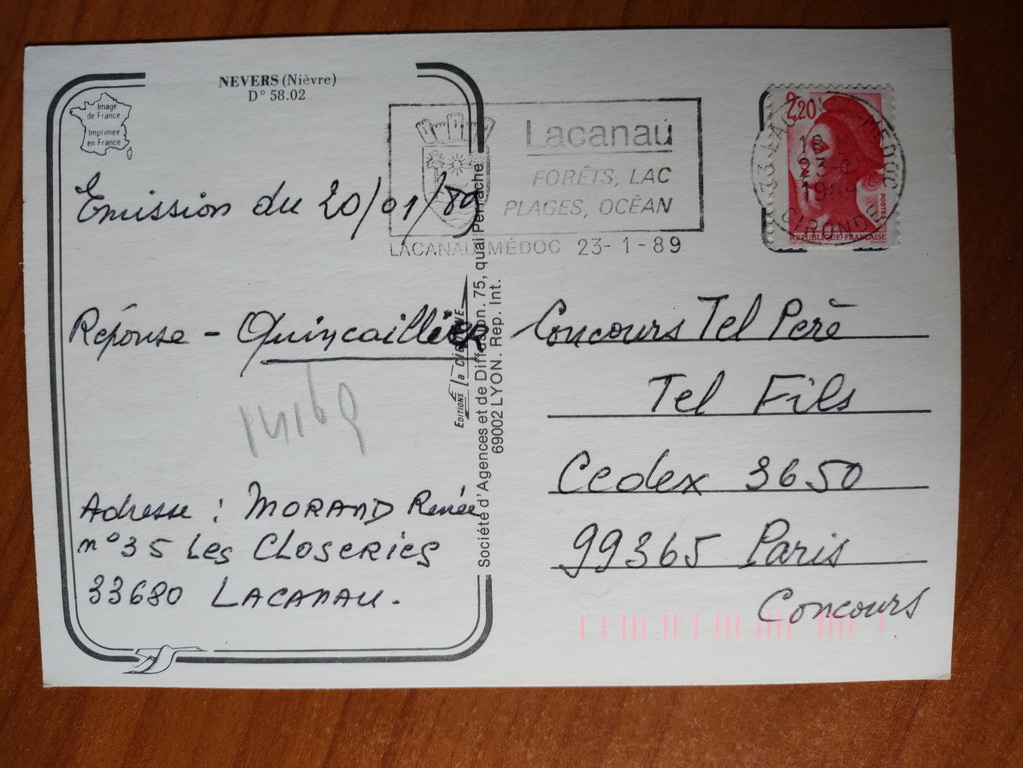 NEVERS (Nièvre)
D° 58.02
Image
de France
Imprimée
en France
Emission du 20/01/89
Réponse - Quincaillier
Adresse : MORAND Renée
n° 35 Les CLOSERIES
33680 LACANAU.
EDITIONS la CIGOGNE
Société d'Agences et de Diffusion. 75, quai Perrache
69002 LYON. Rep. Int.
Lacanau
FORÊTS, LAC
PLAGES, OCÉAN
LACANAU MÉDOC 23-1-89
2,20
RÉPUBLIQUE FRANÇAISE
POSTES
33 MÉDOC
GIRONDE
Concours Tel Perè
Tel Fils
Cedex 3650
99365 Paris
Concours